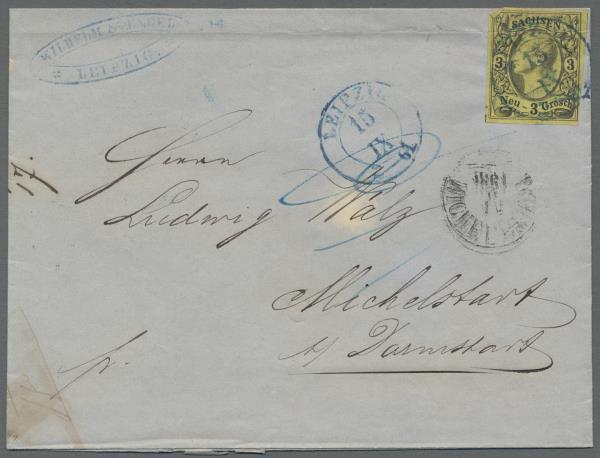 WILHELM
LEIPZIG.
SACHSEN
3 3
Neu - 3 Grosch
LEIPZIG
15
IX
61
Herrn
Ludwig Walz
Michelstart
b/ Darmstart
pr.
1861